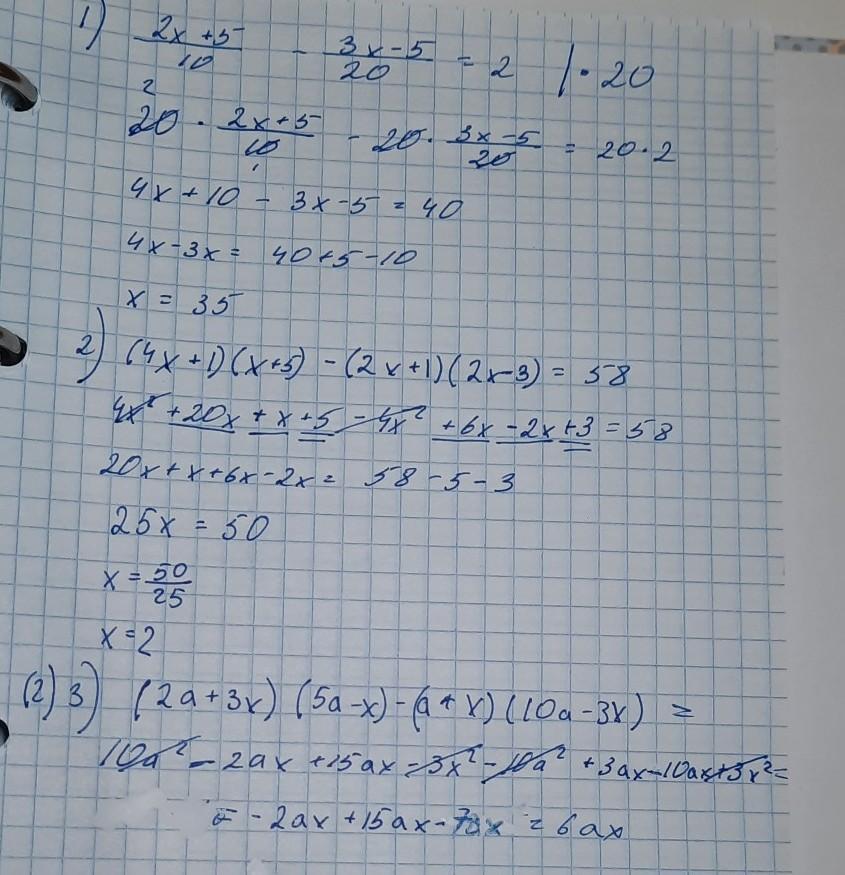 1) (2x+5)/10 - (3x-5)/20 = 2 | · 20
2
20 · (2x+5)/10 - 20 · (3x-5)/20 = 20 · 2
1
4x + 10 - 3x - 5 = 40
4x - 3x = 40 + 5 - 10
x = 35
2) (4x+1)(x+5) - (2x+1)(2x-3) = 58
4x² + 20x + x + 5 - 4x² + 6x - 2x + 3 = 58
20x + x + 6x - 2x = 58 - 5 - 3
25x = 50
x = 50/25
x = 2
(2) 3) (2a+3x) (5a-x) - (a+x) (10a-3x) =
10a² - 2ax + 15ax - 3x² - 10a² + 3ax - 10ax + 3x² =
= - 2ax + 15ax - 7ax = 6ax